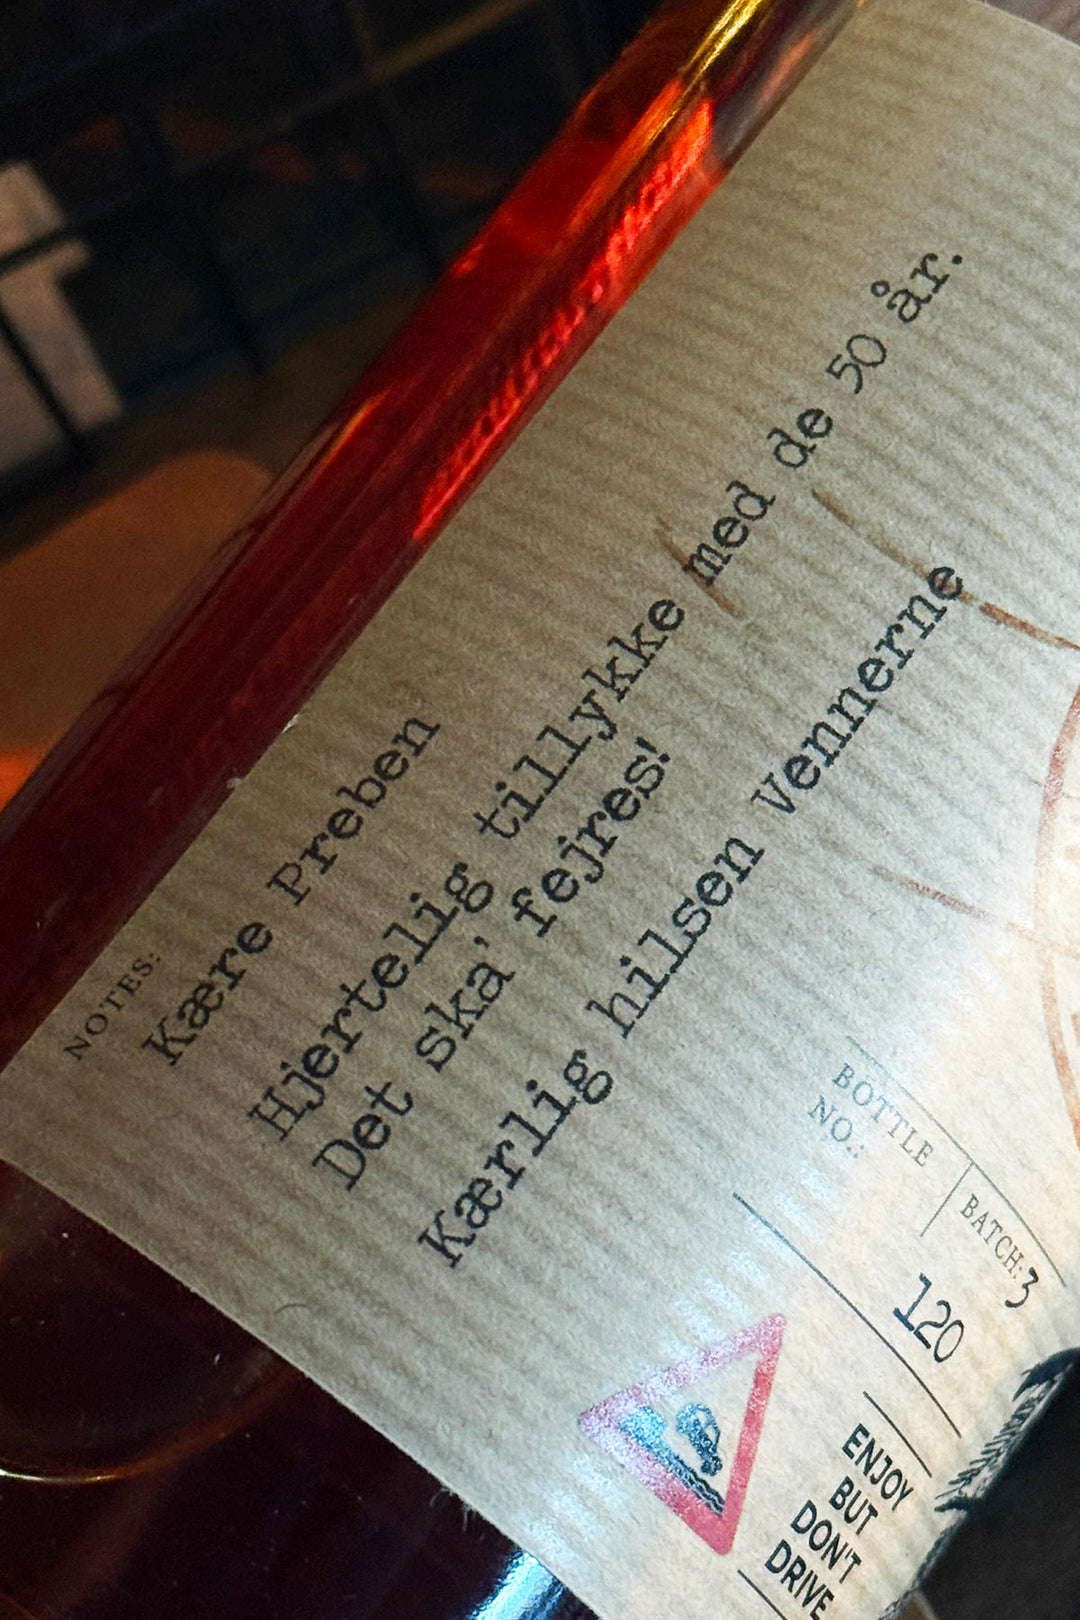 NOTES:
Kære Preben
Hjertelig tillykke med de 50 år.
Det ska' fejres!
Kærlig hilsen Vennerne
BOTTLE
NO.:
BATCH: 3
120
ENJOY
BUT
DON'T
DRIVE